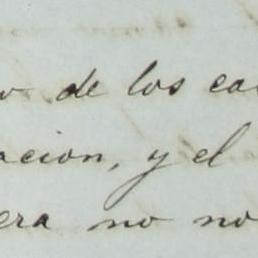 de los ca
acion, y el
era no no